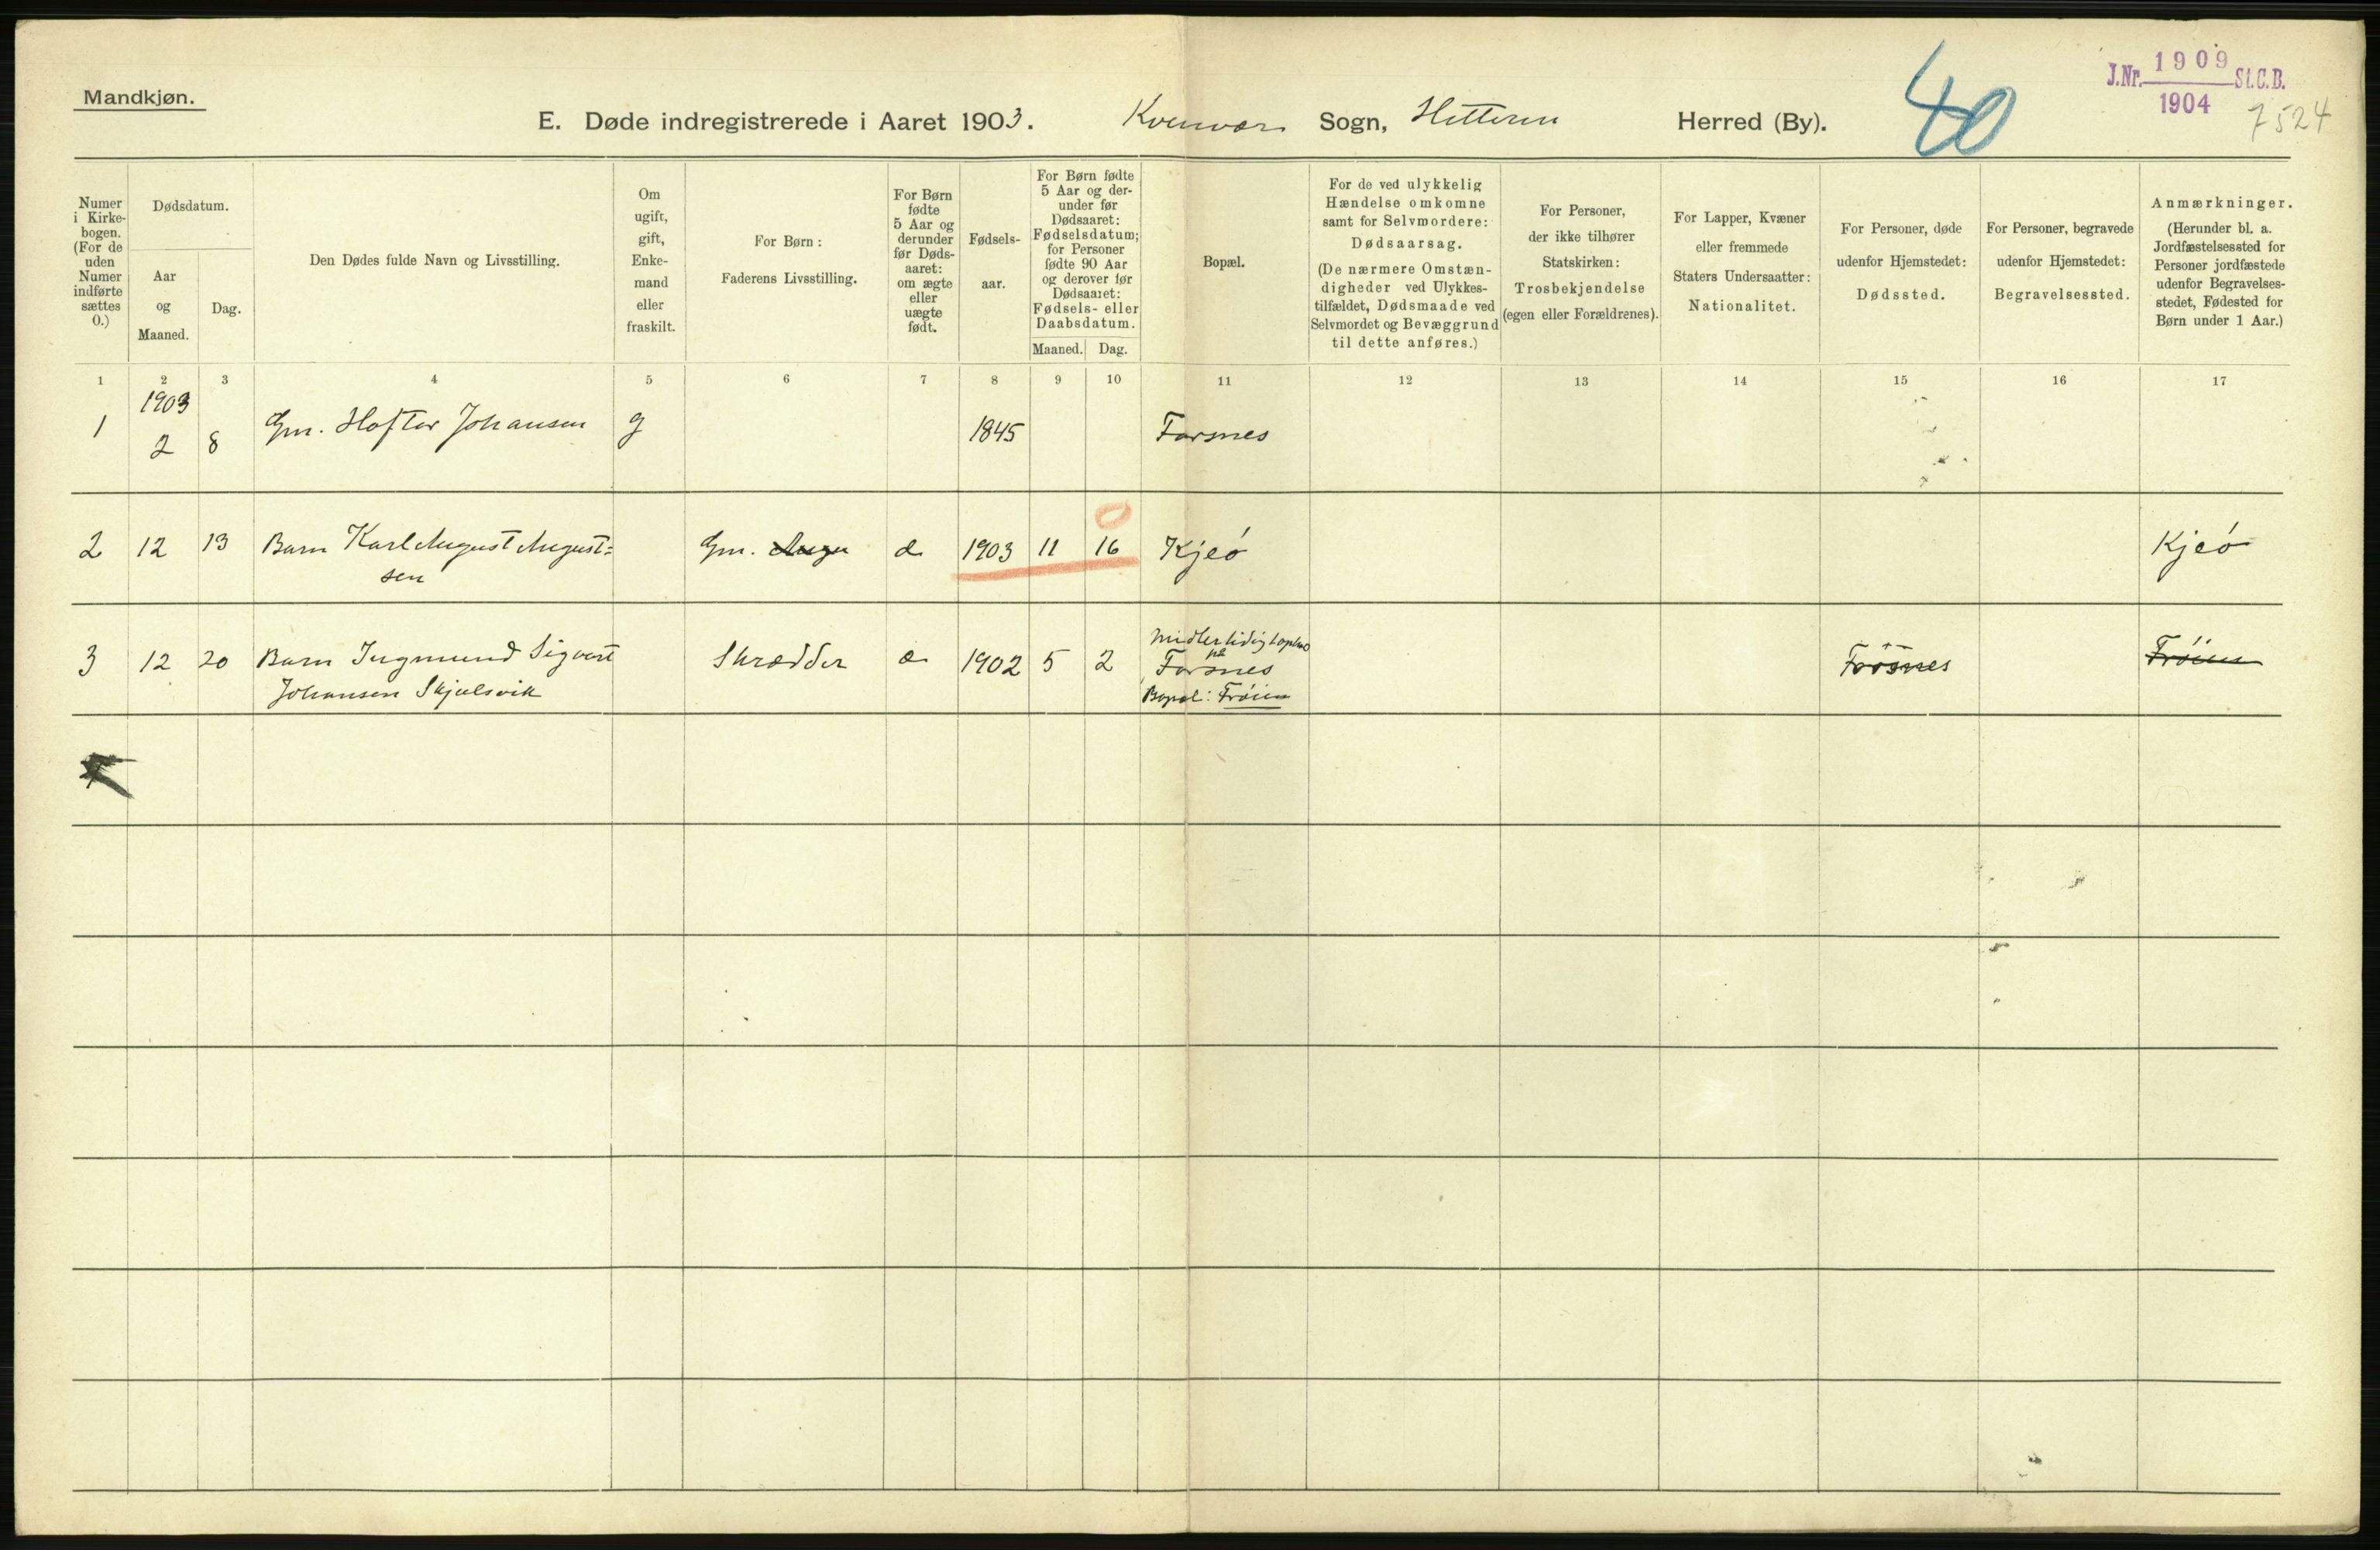 Mandkjøn.
E. Døde indregistrerede i Aaret 1903. Kvenvær Sogn, Hitteren Herred (By).
40
J.Nr. 1909 St.C.B.
1904
7524
Numer i Kirke- bogen. (For de uden Numer indførte sættes 0.)
Dødsdatum.
Aar og Maaned.
Dag.
Den Dødes fulde Navn og Livsstilling.
Om ugift, gift, Enke- mand eller fraskilt.
For Børn: Faderens Livsstilling.
For Børn fødte 5 Aar og derunder før Døds- aaret: om ægte eller uægte født.
Fødsels- aar.
For Børn fødte 5 Aar og der- under før Dødsaaret: Fødselsdatum; for Personer fødte 90 Aar og derover før Dødsaaret: Fødsels- eller Daabsdatum.
Maaned. Dag.
Bopæl.
For de ved ulykkelig Hændelse omkomne samt for Selvmordere: Dødsaarsag. (De nærmere Omstæn- digheder ved Ulykkes- tilfældet, Dødsmaade ved Selvmordet og Bevæggrund til dette anføres.)
For Personer, der ikke tilhører Statskirken: Trosbekjendelse (egen eller Forældrenes).
For Lapper, Kvæner eller fremmede Staters Undersaatter: Nationalitet.
For Personer, døde udenfor Hjemstedet: Dødssted.
For Personer, begravede udenfor Hjemstedet: Begravelsessted.
Anmærkninger. (Herunder bl. a. Jordfæstelsessted for Personer jordfæstede udenfor Begravelses- stedet, Fødested for Børn under 1 Aar.)
1 2 3 4 5 6 7 8 9 10 11 12 13 14 15 16 17
1903
1 2 8 Gm. Hoftor Johansen g 1845 Forsnes
0
2 12 13 Barn Karl August August= Gm. Augu æ 1903 11 16 Kjeö Kjeö
sen
Midlertidig
på
3 12 20 Barn Ingmund Sigvart Skrædder æ 1902 5 2 Forsnes Forsnes Fröien
Johansen Skjelsvik Bopæl: Fröien